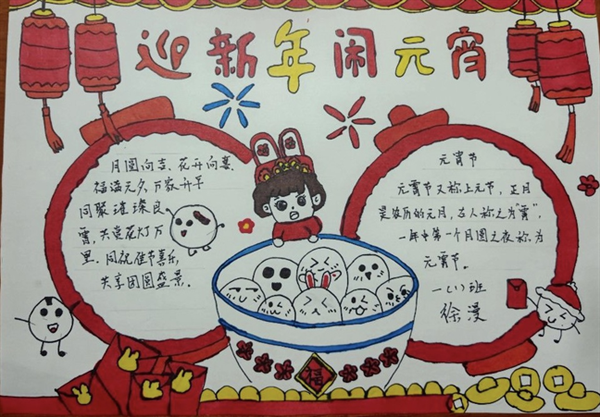 迎新年闹元宵
月圆向吉、花开向喜
福满元夕,万家升平
同聚璀璨良
宵,共赏花灯万
里。同祝佳节喜乐,
共享团圆盛景。
元宵节
元宵节又称上元节,正月
是农历的元月,古人称之为"宵",
一年中第一个月圆之夜称为
元宵节。
一(1)班
徐漫
福